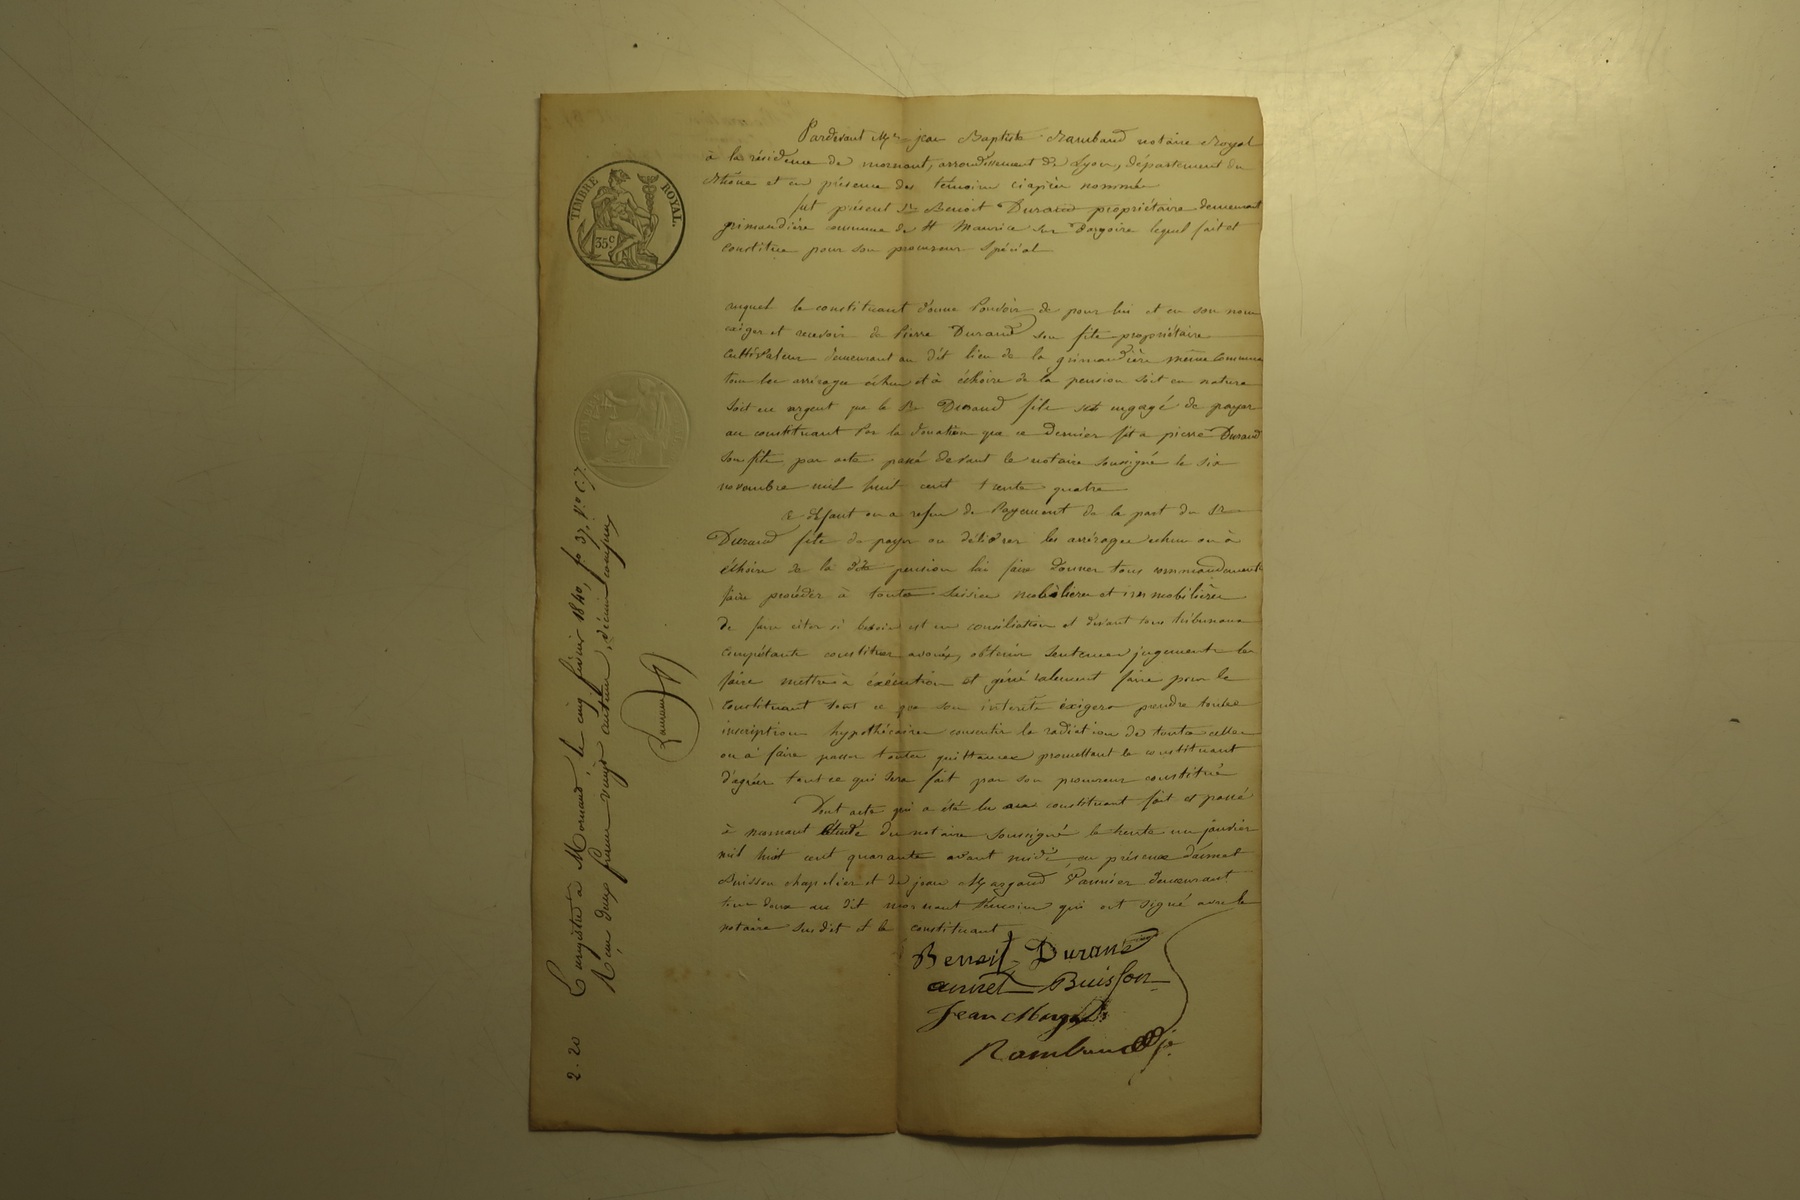 Pardevant Me jean Baptiste Rambaud notaire Royal
à la résidence de mornant, arrondissement de Lyon, département du
Rhône et en présence des témoins ciaprès nommés
fut présent Sr Benoit Durand propriétaire demeurant
grimaudière commune de St Maurice sur dargoire lequel fait et
constitue pour son procureur spécial
auquel le constituant donne Pouvoir de pour lui et en son nom
exiger et recevoir de Pierre Durand son fils propriétaire
cultivateur demeurant au dit lieu de la grimaudière même commune
tous les arrérages échus et à échoire de la pension soit en nature
soit en argent que le Sr Durand fils sest engagé de payer
au constituant Par la donation que ce dernier fit a pierre Durand
son fils par acte passé devant le notaire soussigné le six
novembre mil huit cent trente quatre
a défaut ou a refus de Payement de la part du Sr
Durand fils de payer ou délivrer les arrérages echus ou à
échoire de la dite pension lui faire donner tous commandements
faire procéder à toutes saisies mobilières et immobilières
de faire citer si besoin est en conciliation et devant tous tribunaux
compétants constituer avoués, obtenir sentences jugements les
faire mettre à éxécution et généralement faire pour le
constituant tout ce que son intérêts éxigera prendre toutes
inscriptions hypothécaires consentir la radiation de toutes celles
ou à faire passer toutes quittances promettant le constituant
d'agréer tout ce qui sera fait par son procureur constitué
Dont acte qui a été lu au constituant fait et passé
à mornant étude du notaire soussigné le trente un janvier
mil huit cent quarante avant midi en présence d'aimet
Buisson chapelier et de jean Margand Pannier demeurant
tous deux au dit mornant témoins qui ont signé avec le
notaire susdit et le constituant
Benoit Durand
aimet Buisson
Jean Margand
Rambaud
TIMBRE ROYAL.
35 c
Enregistré à Mornant le cinq février 1840, fo 37, Vo C. 7.
Reçu deux francs vingt centimes, décime compris
2. 20